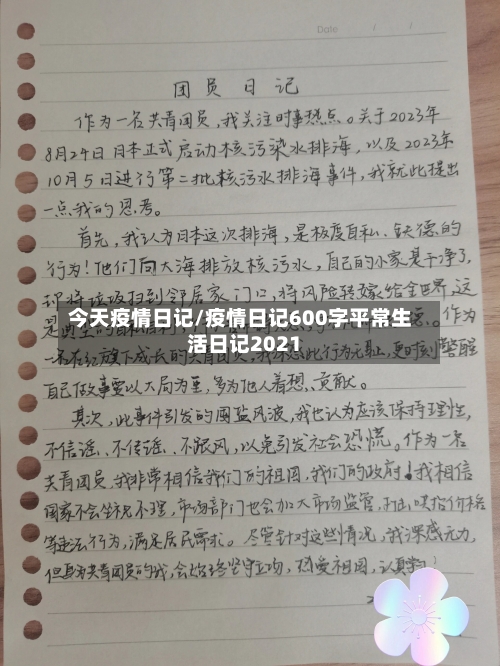 Date / /
团员日记
作为一名共青团员，我关注时事热点。关于2023年
8月24日日本正式启动核污染水排海，以及2023年
10月5日进行第二批核污水排海事件，我就此提出
一点我的思考。
首先，我认为日本这次排海，是极度自私、缺德的
行为！他们向大海排放核污水，自己的小家是干净了，
却将垃圾扫到邻居家门口，将风险转嫁给全世界，这
今天疫情日记/疫情日记600字平常生
活日记2021
是典型的 作为
一名在红旗下成长的共青团员， 此行为无耻，更时刻警醒
自己做事要以大局为重，多为他人着想、贡献。
其次，此事件引发的囤盐风波，我也认为应该保持理性，
不信谣、不传谣、不跟风，以免引发社会恐慌。作为一名
共青团员，我非常相信我们的祖国，我们的政府！我相信
国家不会坐视不理，市场部门也会加大市场监管，打击哄抬价格
等违法行为，满足居民需求。尽管针对这些情况，我深感无力，
但身为共青团员的我，会始终坚守立场，热爱祖国，认真学